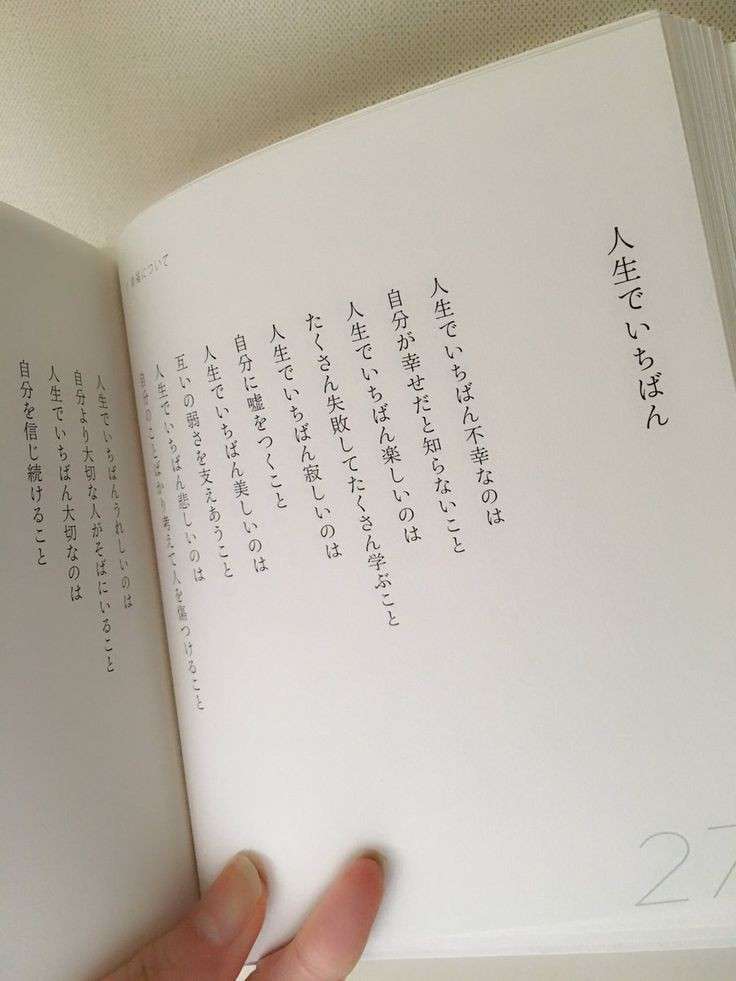 人生でいちばん
人生でいちばん不幸なのは
自分が幸せだと知らないこと
人生でいちばん楽しいのは
たくさん失敗してたくさん学ぶこと
人生でいちばん寂しいのは
自分に嘘をつくこと
人生でいちばん美しいのは
互いの弱さを支えあうこと
人生でいちばん悲しいのは
自分のことばかり考えて人を傷つけること
について
27
人生でいちばんうれしいのは
自分より大切な人がそばにいること
人生でいちばん大切なのは
自分を信じ続けること